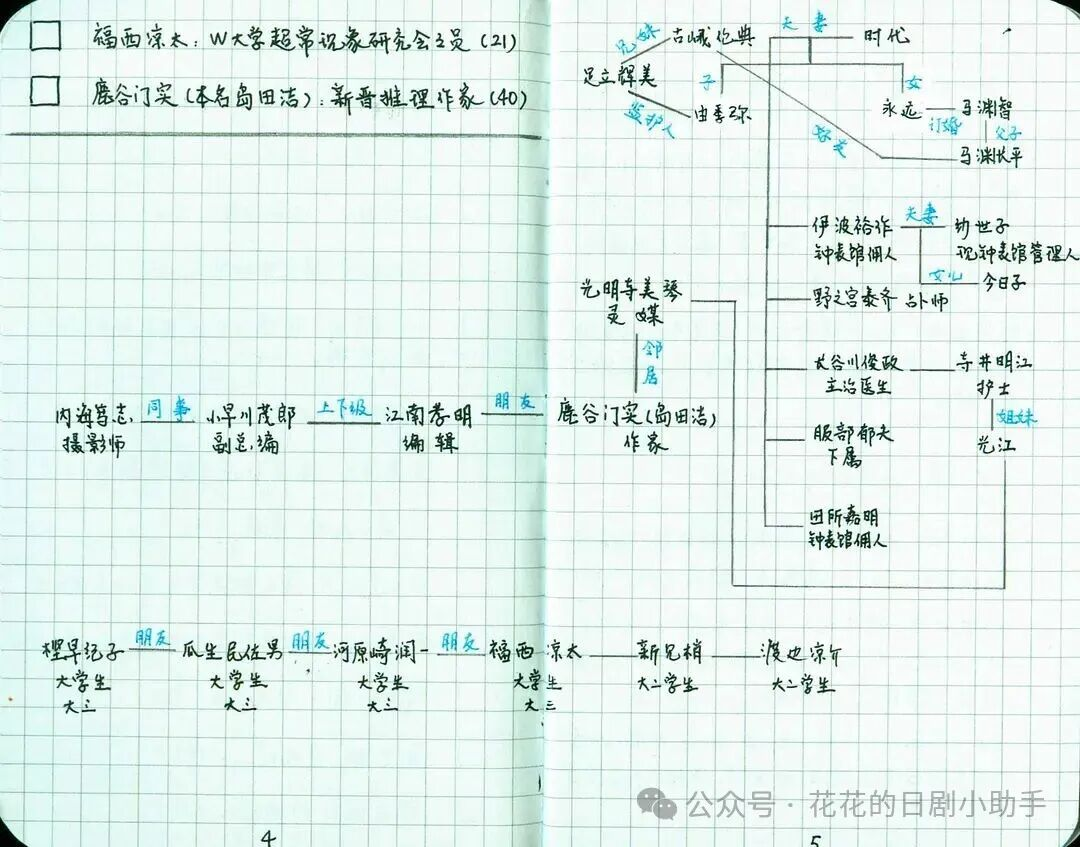 福西凉太：W大学超常现象研究会之员(21)
鹿谷门实(本名岛田洁)：新晋推理作家(40)
内海笃志
摄影师
同事
小早川茂郎
副总编
上下级
江南孝明
编辑
朋友
樫早纪子
大学生
大三
朋友
瓜生民佐男
大学生
大三
朋友
河原崎润一
大学生
大三
朋友
福西凉太
大学生
大三
4
兄妹
古峨伦典
夫妻
时代
足立辉美
监护人
子
由季弥
女
永远
订婚
马渊智
父子
马渊长平
好友
伊波裕作
钟表馆佣人
夫妻
纱世子
现钟表馆管理人
女儿
今日子
光明寺美琴
灵媒
野之宫泰齐 占卜师
邻居
长谷川俊政
主治医生
寺井明江
护士
姐妹
光江
鹿谷门实(岛田洁)
作家
服部郁夫
下属
田所嘉明
钟表馆佣人
新见梢
大二学生
渡边凉介
大二学生
公众号·花花的日剧小助手
5